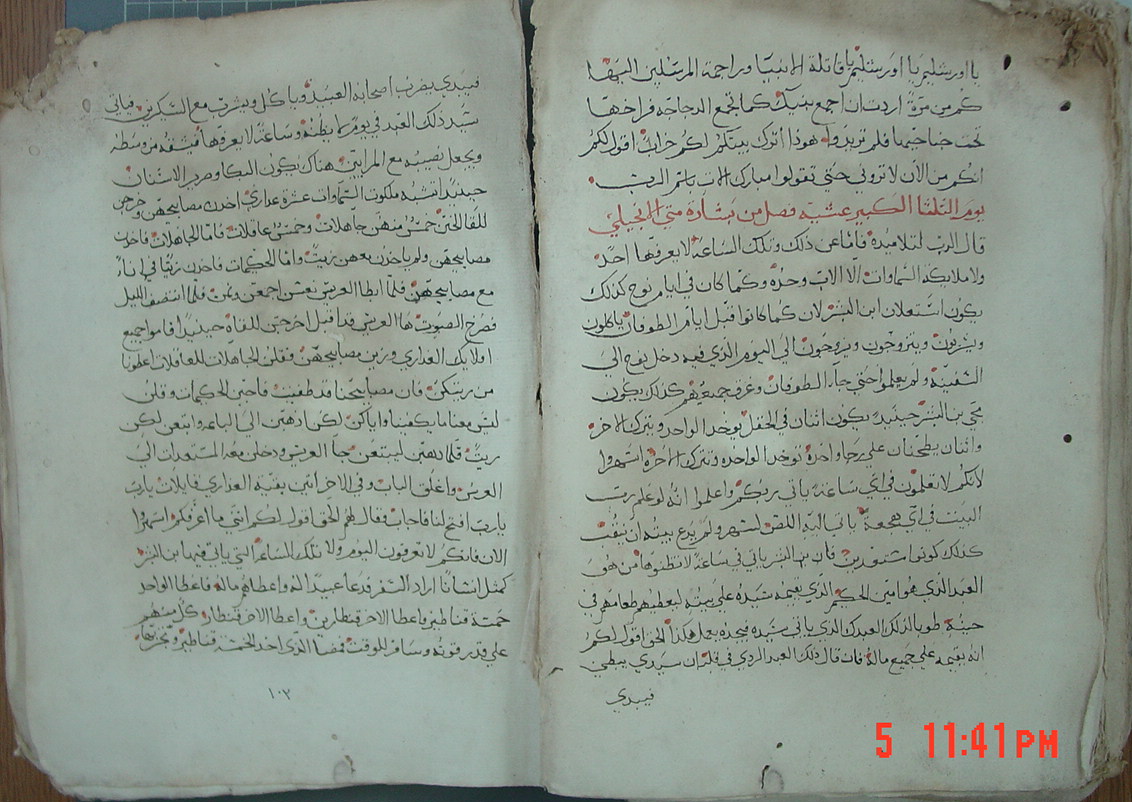 يا اورشليم يا اورشليم يا قاتلة الانبيا وراجمة المرسلين اليها
كم من مرة اردت ان اجمع بنيك كما تجمع الدجاجه فراخها
تحت جناحيها فلم تريدوا هوذا اترك بيتكم لكم خرابا اقول لكم
انكم من الان لا تروني حتي تقولوا مبارك الات باسم الرب
يوم الثلثا الكبير عشيه فصل من بشارة متي الانجيلي
قال الرب لتلاميذه فاما عن ذلك وتلك الساعة لا يعرفها احد
ولا ملايكة السماوات الا الاب وحده وكما كان في ايام نوح كذلك
يكون استعلان ابن البشر لان كما كانوا قبل ايام الطوفان ياكلون
ويشربون ويتزوجون ويزوجون الي اليوم الذي فيه دخل نوح الي
السفينة ولم يعلموا حتي جاء الطوفان وغرق جميعهم كذلك يكون
مجي بن البشر حينيد يكون اثنان في الحقل يوخد الواحد ويترك الاخر
واثنان يطحنان علي رحا واحدة توخد الواحده وتترك الاخرة اسهروا
لانكم لا تعلمون في اي ساعة ياتي ربكم واعلموا انه لو علم رب
البيت في اي هجعة ياتي اليه اللص لسهر ولم يدع بيته ان ينقب
كذلك كونوا مستعدين فان بن البشر ياتي في ساعة لا تظنوها من هو
العبد الذي هو امين الحكيم الذي يقيمه سيده علي بيته ليعطيهم طعامهم في
حينه طوبا لذلك العبد الذي ياتي سيده فيجده يعمل هكذا الحق اقول لكم
انه يقيمه علي جميع ماله فان قال ذلك العبد الردي في قلبه ان سيدي يبطي
فيبدي
فيبدي يضرب اصحابه العبيد وياكل ويشرب مع السكيرين فياتي
سيد ذلك العبد في يوم لا يظنه وساعة لا يعرفها فيشقه من وسطه
ويجعل نصيبه مع المرايين هناك يكون البكا وصرير الاسنان
حينيد اتشبه ملكوت السماوات عشرة عداري اخدن مصابيحهن وخرجن
للقا الختن خمس منهن جاهلات وخمس عاقلات فاما الجاهلات فاخدن
مصابيحهن ولم ياخدن معهن زيت واما الحكيمات فاخدن زيتا في اناء
مع مصابيحهن فلما ابطا العريس نعسن اجمعن ونمن فلما انتصف الليل
فصرخ الصوت ها العريس قد اقبل اخرجن للقاه حينيد اقاموا جميع
اولايك العداري وزين مصابيحهن فقلن الجاهلات للعاقلات اعطونا
من زيتكن فان مصابيحنا قد طفيت فاجبن الحكيمات وقلن
ليس معنا ما يكفينا واياكن لكن ادهبن الي الباعه وابتعن لكن
زيت فلما دهبن ليبتعن جا العريس ودخلن معه المستعدات الي
العرس واغلق الباب وفي الاخر اتين بقية العداري قايلات يا رب
يا رب افتح لنا فاجاب وقال لهم الحق اقول لكم انني ما اعرفكم اسهروا
الان فانكم لا تعرفون اليوم ولا تلك الساعة التي ياتي فيها ابن البشر
كمثل انسانا اراد السفر فدعا عبيد له واعطاهم ماله فاعطا الواحد
خمسة قناطير واعطا الاخر قنطارين واعطا الاخر قنطار كل منهم
علي قدر قوته وسافر للوقت فمضا الذي اخد الخمسة قناطير وتجر بها
١٠٢
5 11:41PM